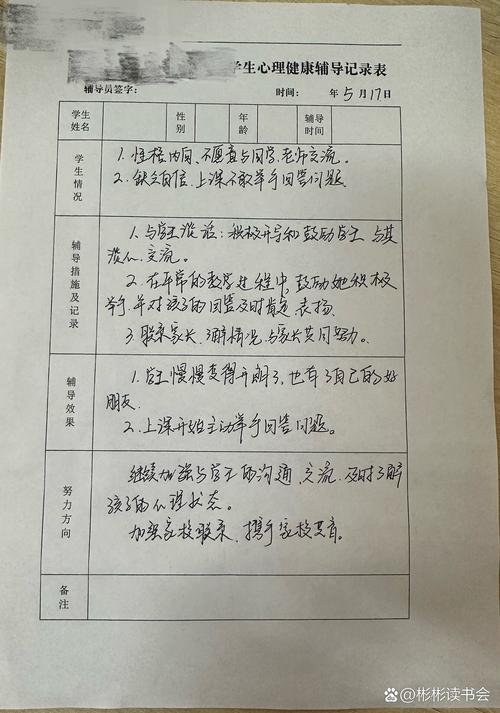 学生心理健康辅导记录表
辅导员签字： 时间： 年5月17日
学生姓名 性别 年龄 辅导时间
学生情况
1. 性格内向、不愿意与同学、老师交流。
2. 缺乏自信、上课不敢举手回答问题
辅导措施及记录
1. 与学生谈话：积极开导和鼓励学生 与其
谈心、交流。
2. 在平常的教学过程中，鼓励她积极
举手，并对孩子的回答及时肯定、表扬。
3. 联系家长、了解情况、与家长共同努力。
辅导效果
1. 学生慢慢变得开朗了，也有了自己的好
朋友
2. 上课开始主动举手回答问题。
努力方向
继续加强与学生的沟通、交流，及时了解
孩子的心理状态。
加强家校联系、携手家校共育。
备注
@彬彬读书会